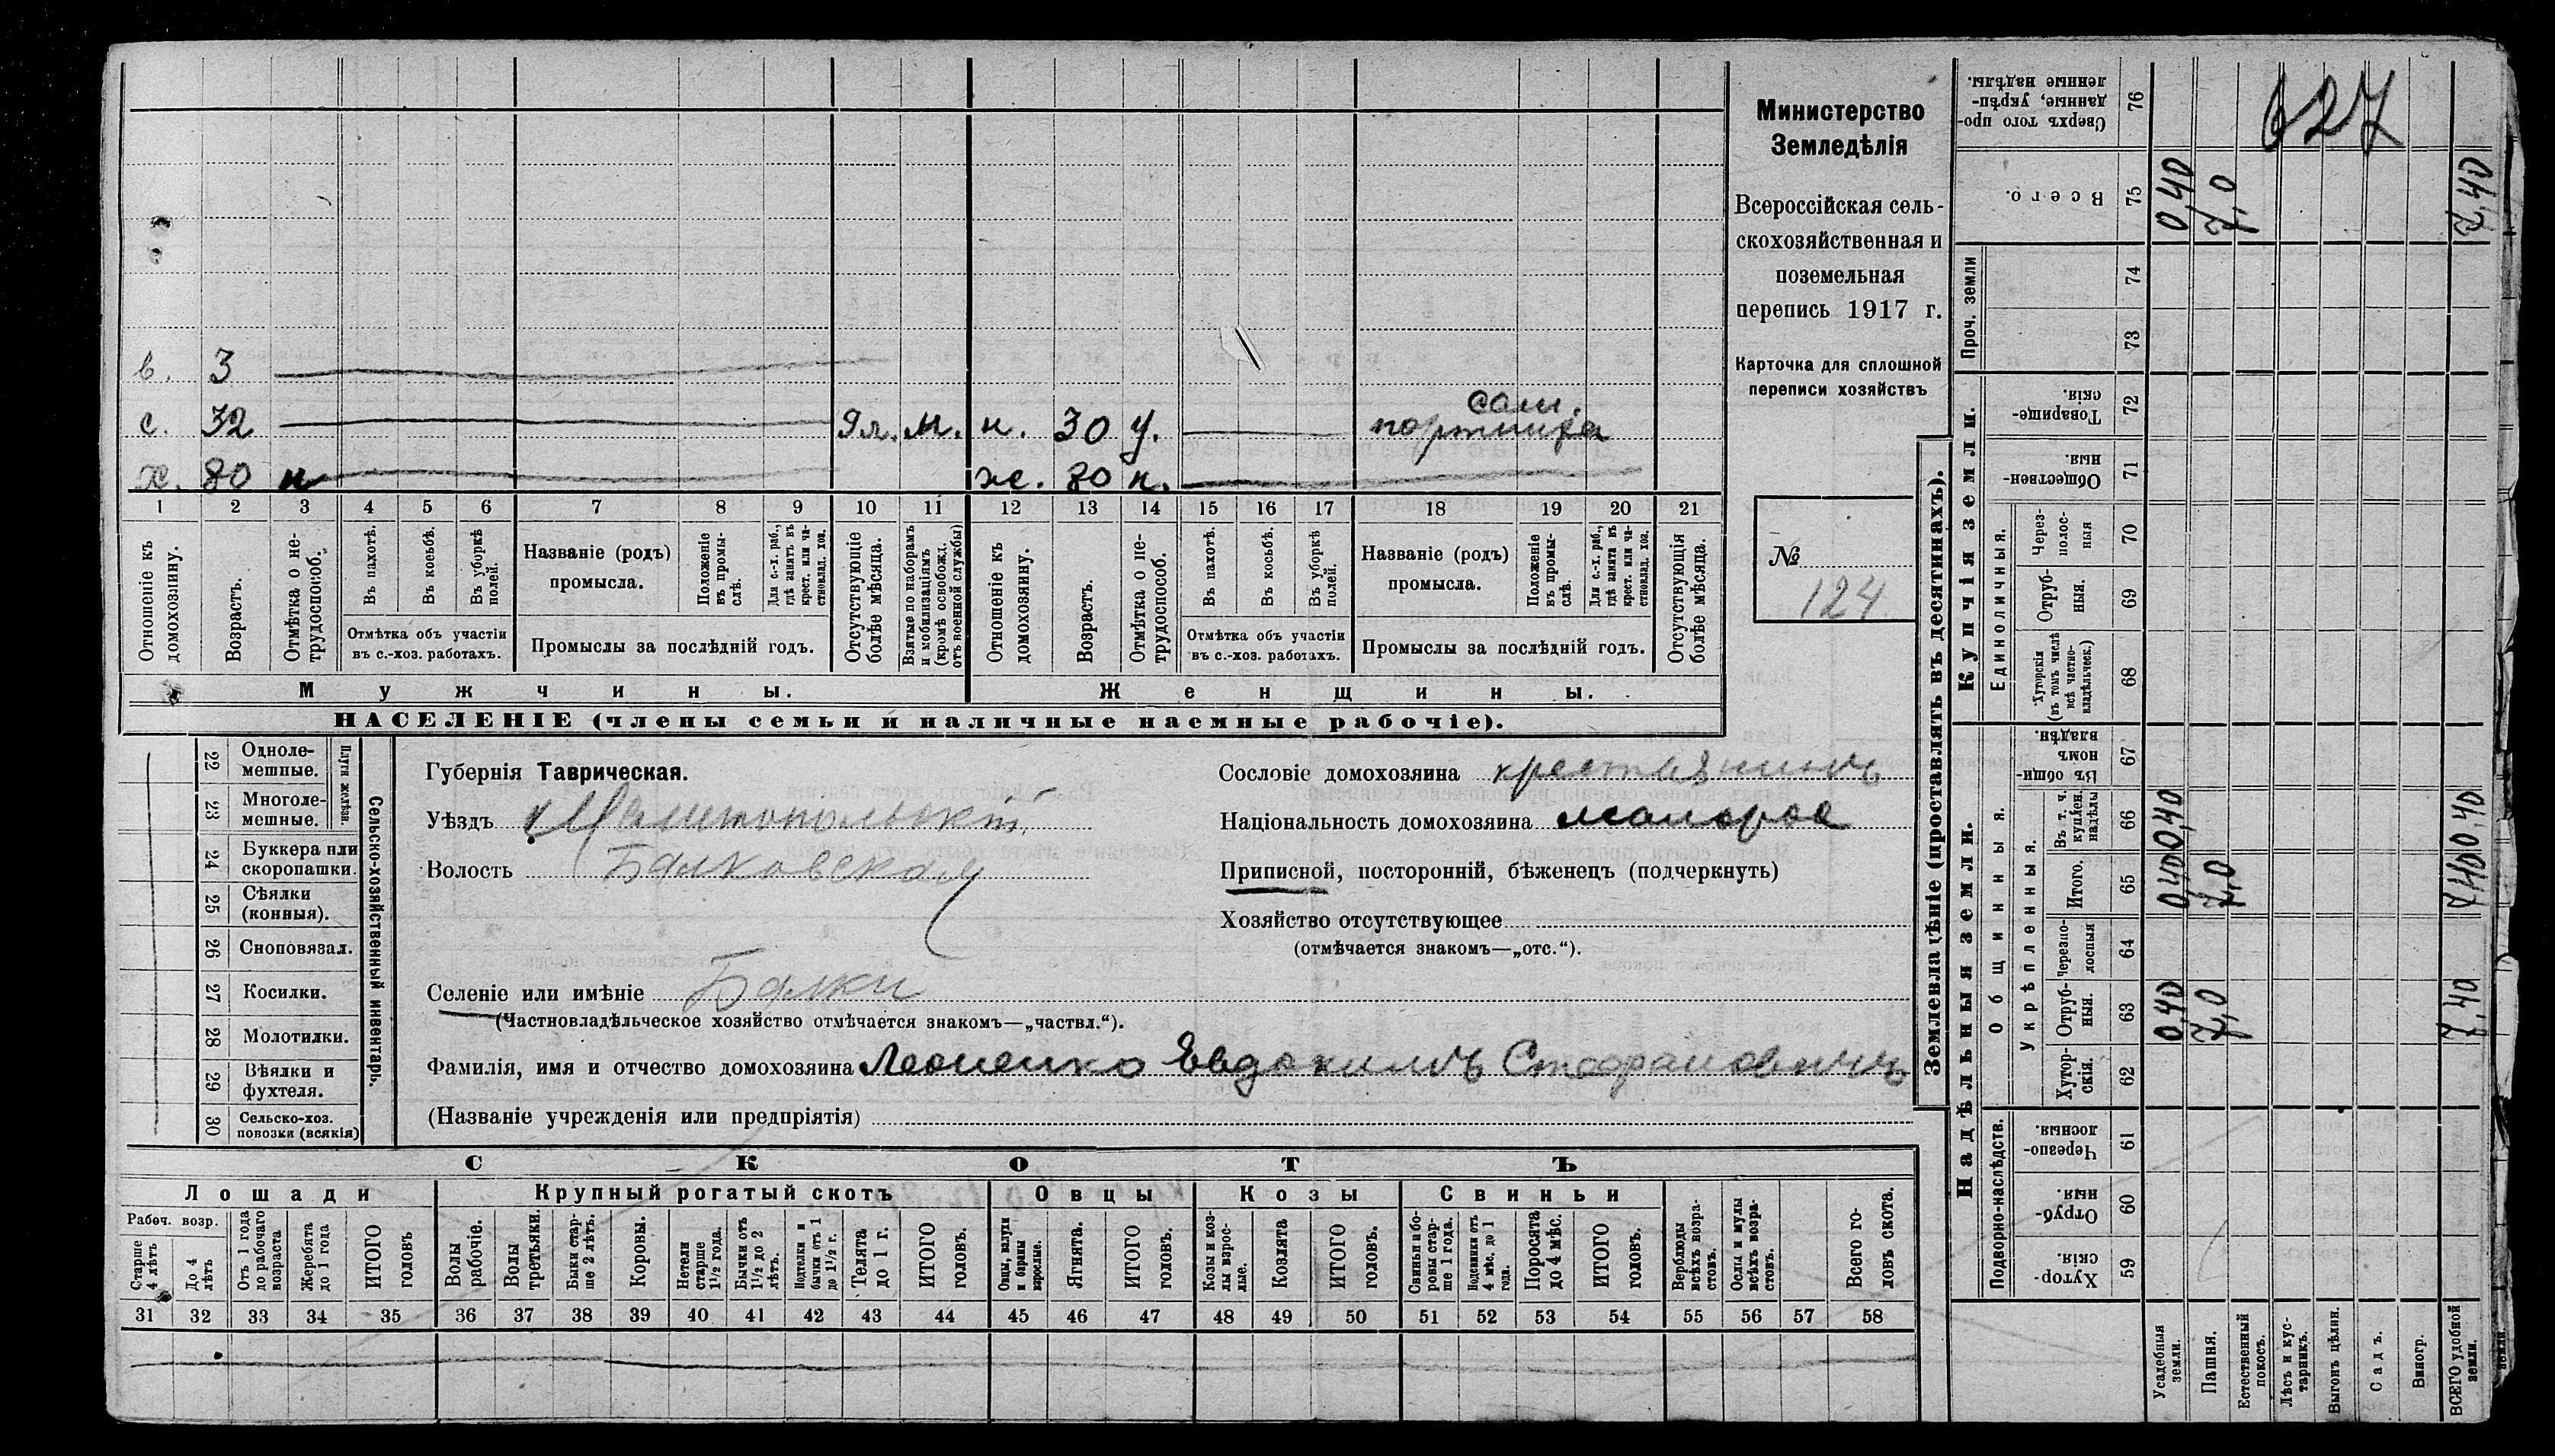 в. 3
с. 32 9 л. м. н. 30 у. сам. портниха
х. 80 н ж. 80 н.
1 2 3 4 5 6 7 8 9 10 11 12 13 14 15 16 17 18 19 20 21
Отношеніе къ домохозяину.
Возрастъ.
Отмѣтка о не-
трудоспособ.
Въ пахотѣ.
Въ косьбѣ.
Въ уборкѣ
полей.
Отмѣтка объ участіи
въ с.-хоз. работахъ.
Названіе (родъ)
промысла.
Положеніе
въ промы-
слѣ.
Для с.-х. раб.,
гдѣ занятъ въ
крест. или ча-
стновлад. хоз.
Промыслы за послѣдній годъ.
Отсутствующіе
болѣе мѣсяца.
Взятые по наборамъ
и мобилизаціямъ
(кромѣ освобожд.
отъ военной службы)
Отношеніе къ
домохозяину.
Возрастъ.
Отмѣтка о не-
трудоспособ.
Въ пахотѣ.
Въ косьбѣ.
Въ уборкѣ
полей.
Отмѣтка объ участіи
въ с.-хоз. работахъ.
Названіе (родъ)
промысла.
Положеніе
въ промы-
слѣ.
Для с.-х. раб.,
гдѣ занята въ
крест. или ча-
стновлад. хоз.
Промыслы за послѣдній годъ.
Отсутствующія
болѣе мѣсяца.
Мужчины. Женщины.
НАСЕЛЕНІЕ (члены семьи и наличные наемные рабочіе).
Министерство
Земледѣлія
Всероссійская сель-
скохозяйственная и
поземельная
перепись 1917 г.
Карточка для сплошной
переписи хозяйствъ
№
124
22 Одноле-
мешные.
23 Многоле-
мешные.
Плуги желѣзн.
24 Буккера или
скоропашки.
25 Сѣялки
(конныя).
26 Сноповязал.
27 Косилки.
28 Молотилки.
29 Вѣялки и
фухтеля.
30 Сельско-хоз.
повозки (всякія)
Сельско-хозяйственный инвентарь.
Губернія Таврическая.
Уѣздъ Мелитопольскій
Волость Балковская
Селеніе или имѣніе Балки
(Частновладѣльческое хозяйство отмѣчается знакомъ—„частвл.“).
Фамилія, имя и отчество домохозяина Леоненко Евдокимъ Стефановичъ
(Названіе учрежденія или предпріятія)
Сословіе домохозяина крестьянинъ
Національность домохозяина малорос
Приписной, посторонній, бѣженецъ (подчеркнуть)
Хозяйство отсутствующее
(отмѣчается знакомъ—„отс.“).
СКОТЪ
Лошади Крупный рогатый скотъ Овцы Козы Свиньи
Рабоч. возр.
Старше
4 лѣтъ
До 4
лѣтъ
Отъ 1 года
до рабочаго
возраста
Жеребята
до 1 года
ИТОГО
головъ
Волы
рабочіе.
Волы
третьяки.
Быки стар-
ше 2 лѣтъ.
Коровы.
Нетели
старше
1½ года.
Бычки отъ
1½ до 2
лѣтъ.
бычки отъ 1
до 1½ г.
Телята
до 1 г.
ИТОГО
головъ.
Овцы, валухи
и бараны
взрослые.
Ягнята.
ИТОГО
головъ.
Козы и коз-
лы взрос-
лые.
Козлята
ИТОГО
головъ.
Свиньи и бо-
ровы стар-
ше 1 года.
Подсвинки отъ
4 мѣс. до 1
года.
Поросята
до 4 мѣс.
ИТОГО
головъ.
Верблюды
всѣхъ возра-
стовъ.
Ослы и мулы
всѣхъ возра-
стовъ.
Всего го-
ловъ скота.
31 32 33 34 35 36 37 38 39 40 41 42 43 44 45 46 47 48 49 50 51 52 53 54 55 56 57 58
Землевладѣніе (проставлять въ десятинахъ).
627
Сверхъ того про-
данные, укрѣп-
ленные надѣлы.
76
Всего. 75 0,40 7,0 7,40
Проч. земли
74
73
Купчія земли.
Товарище-
скія.
72
Обществен-
ныя.
71
Единоличныя.
Через-
полос-
ныя
70
Отруб-
ныя.
69
Хуторскія
(въ томъ числѣ
всѣ частно-
владѣльческ.)
68
Надѣльныя земли.
Общинныя.
Въ общи-
номъ
владѣн.
67
Укрѣпленныя.
Въ т. ч.
куплен.
надѣлы
66 0,40 0,40
Итого. 65 0,40 7,0 7,40
Черезпо-
лосныя
64
Отруб-
ныя.
63 0,40 7,0 7,40
Хутор-
скія.
62
Подворно-наслѣдств.
Черезпо-
лосныя.
61
Отруб-
ныя.
60
Хутор-
скія.
59
Усадебныя
земли.
Пашня.
Естественный
покосъ.
Лѣсъ и кус-
тарникъ.
Выгонъ цѣлин.
Садъ.
Виногр.
ВСЕГО удобной
земли.
земли.